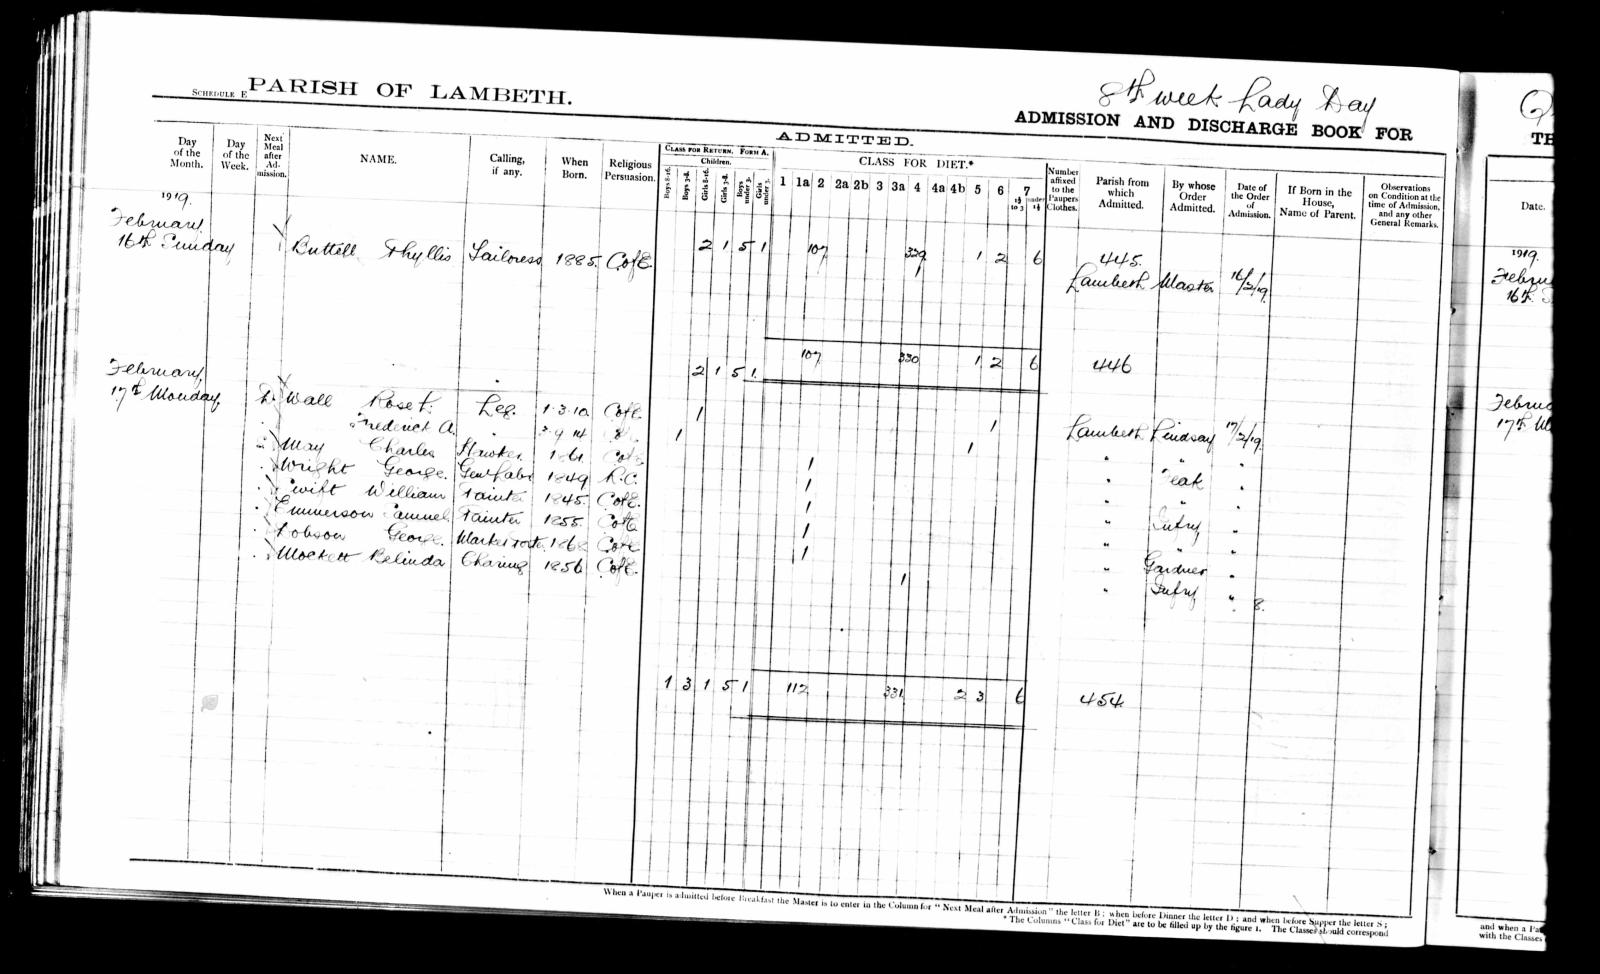 8th week Lady Day
SCHEDULE E PARISH OF LAMBETH.
ADMISSION AND DISCHARGE BOOK FOR
TH
ADMITTED.
Day of the Month.
Day of the Week.
Next Meal after Ad-mission.
NAME.
Calling, if any.
When Born.
Religious Persuasion.
CLASS FOR RETURN, FORM A.
Children.
Boys 8-16. Boys 3-8. Girls 8-16. Girls 3-8. Boys under 3. Girls under 3.
CLASS FOR DIET.*
1 1a 2 2a 2b 3 3a 4 4a 4b 5 6 7
1½ to 3 under 1½
Number affixed to the Paupers Clothes.
Parish from which Admitted.
By whose Order Admitted.
Date of the Order of Admission.
If Born in the House, Name of Parent.
Observations on Condition at the time of Admission, and any other General Remarks.
Date.
1919.
February
16th Sunday Buttell Phyllis Tailoress 1885. CofE. 2 1 5 1 107 329 1 2 6 445.
1 Lambeth Master 16/2/19.
107 330 1 2 6 446
February 2 1 5 1
17th Monday Wall Rose F. Leg. 1·3·10 CofE 1
Frederick A. 1 1 Lambeth Lindsay 17/2/19.
May Charles Hawker CofE 1 " "
Wright George. Gen Labr 1849 R.C. 1 " Peak "
Swift William Painter 1845. CofE. 1 " " "
Emmerson Samuel Painter 1855. CofE 1 " Infry "
George. CofE 1 " " "
Mockett Belinda 1856 CofE. 1 " Gardner "
1 " Infry " 8.
1 3 1 5 1 112 331 2 3 6 454
When a Pauper is admitted before Breakfast the Master is to enter in the Column for "Next Meal after Admission" the letter B; when before Dinner the letter D; and when before Supper the letter S;
* The Columns "Class for Diet" are to be filled up by the figure 1. The Classes should correspond
1919.
Febru
16th
Februa
17th M
and when a Pa
with the Classes